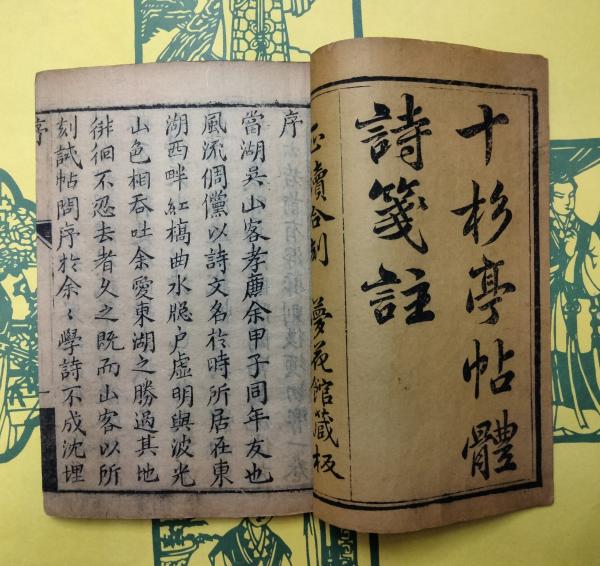 十杉亭帖體
詩箋註
正續合刻 夢花館藏板
序
當湖吳山客孝廉余甲子同年友也
風流倜儻以詩文名於時所居在東
湖西畔紅橋曲水牕戶虛明與波光
山色相吞吐余愛東湖之勝過其地
徘徊不忍去者久之既而山客以所
刻試帖問序於余〻學詩不成沈埋
序
一